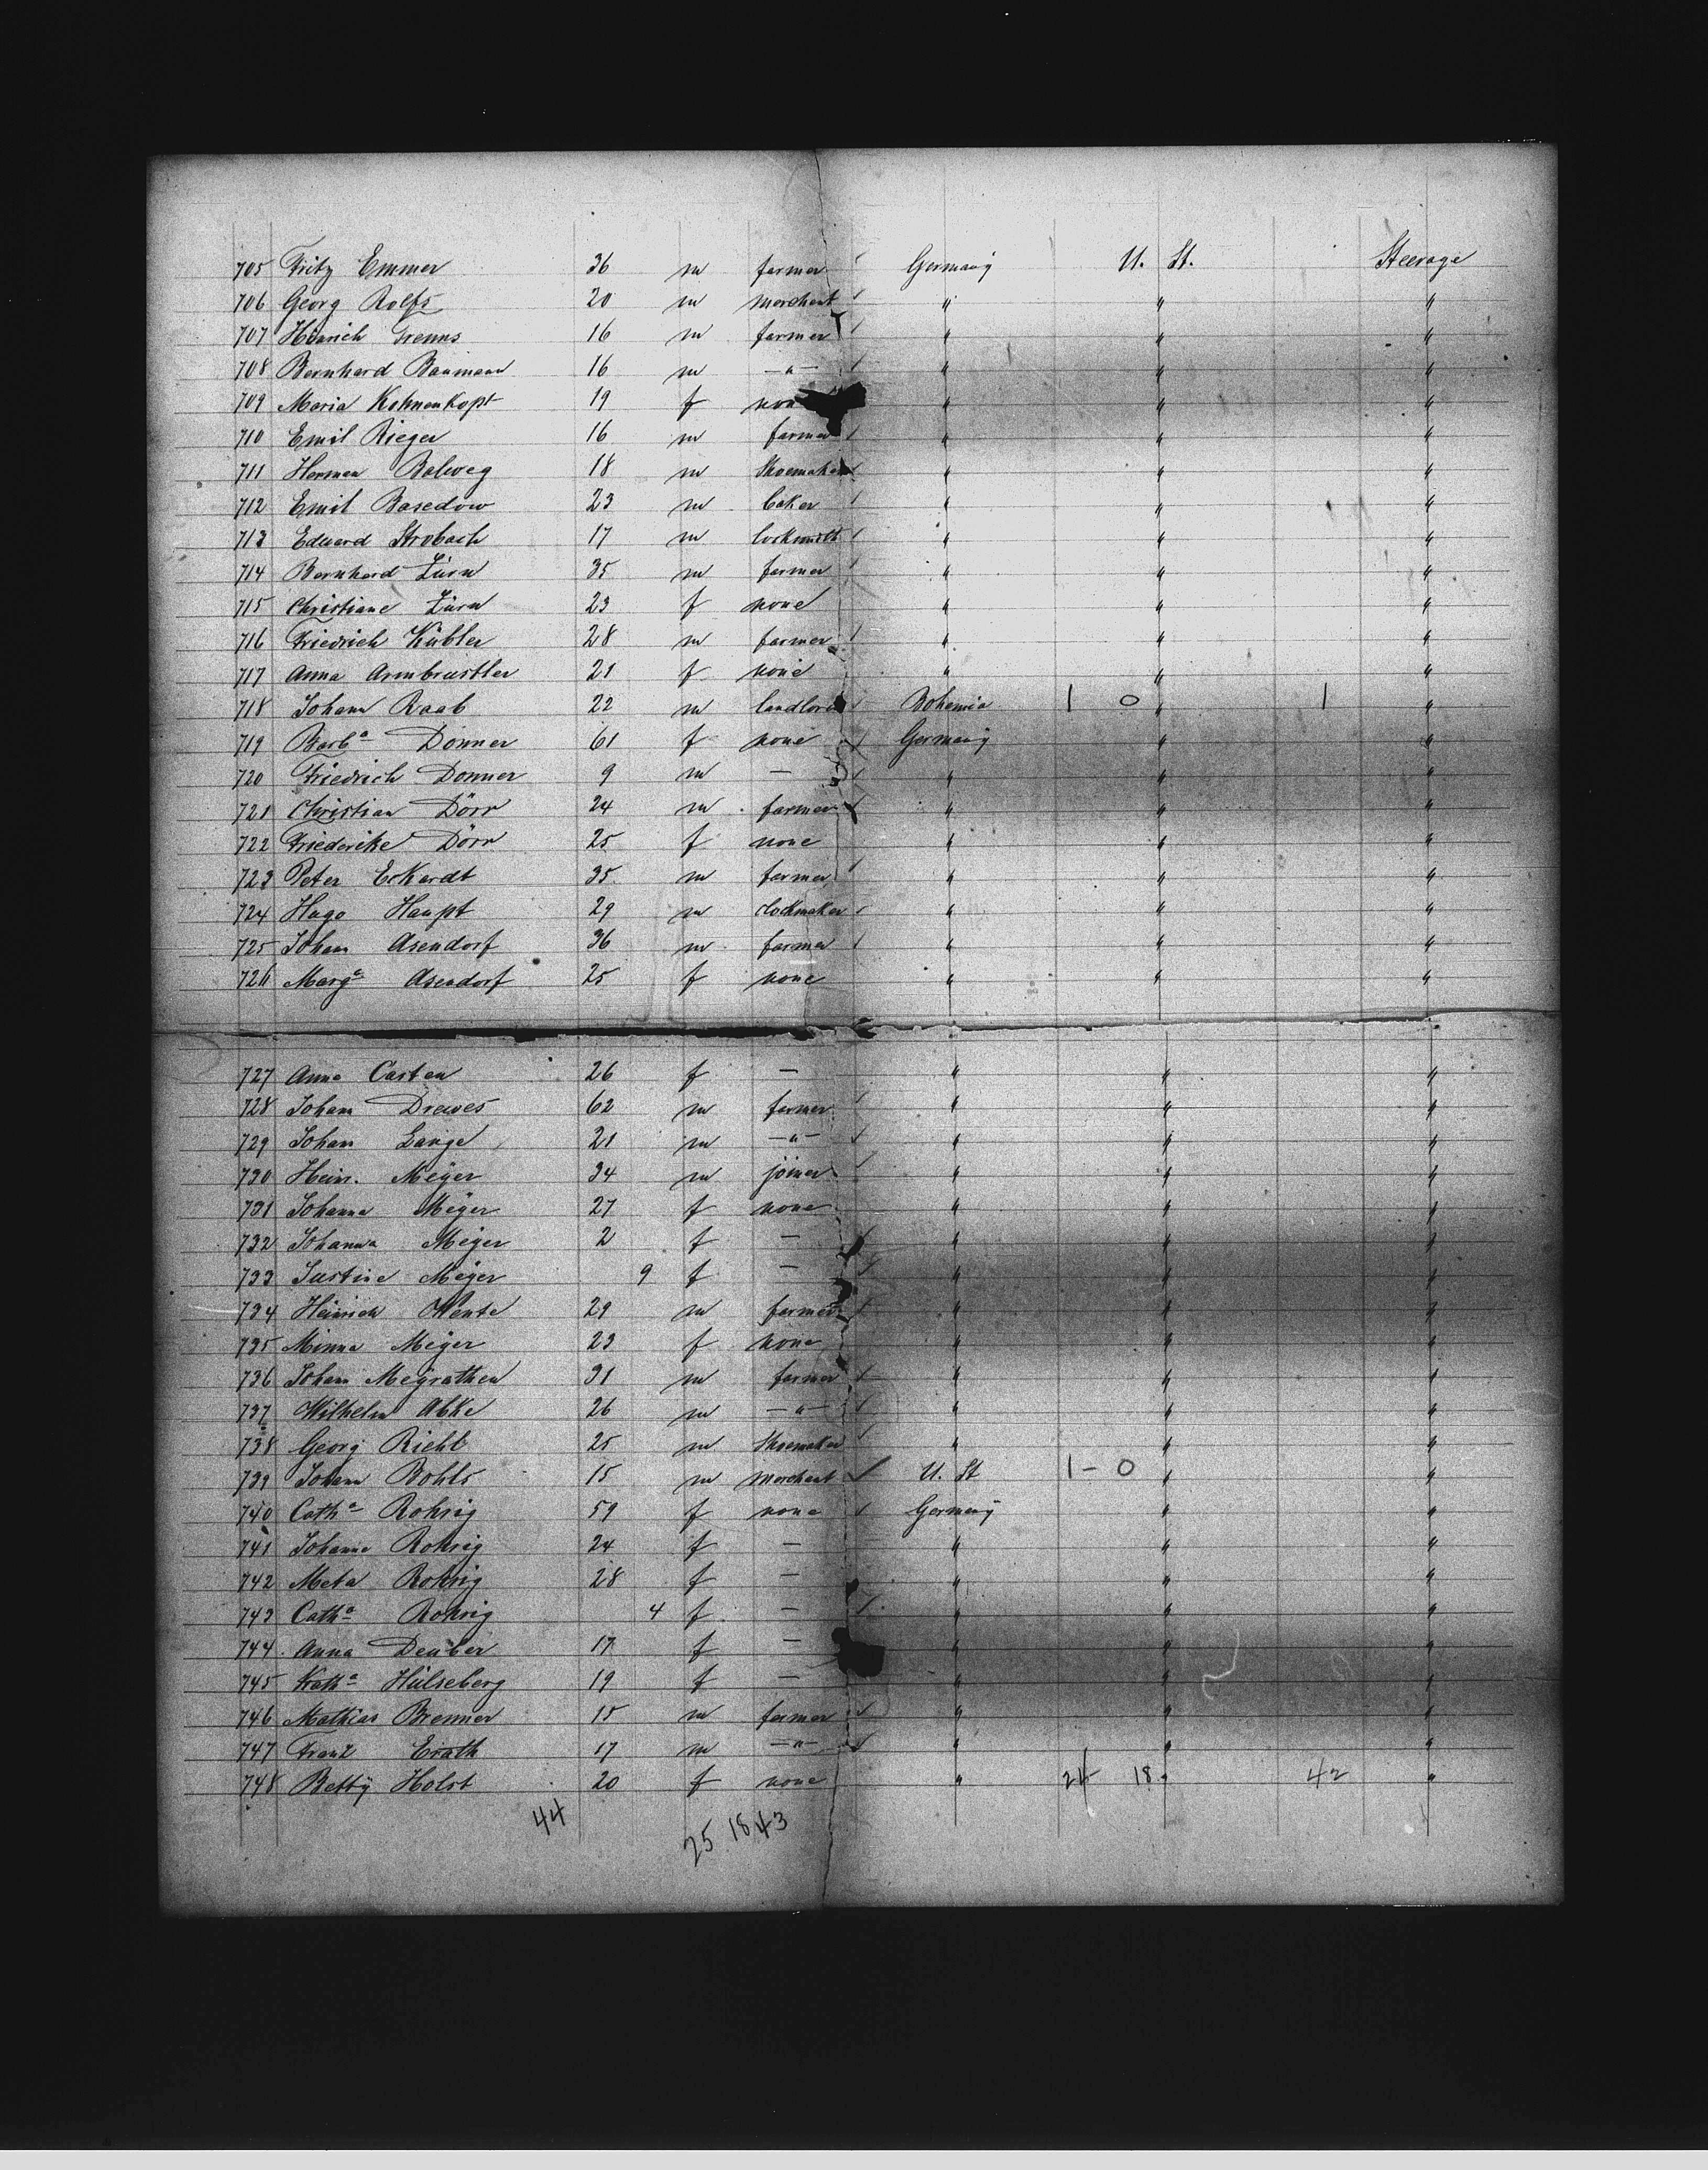 705 Fritz Emmer 36 m farmer Germany U. St. Steerage
706 Georg Rolfs 20 m merchant " " "
707 Heinrich 16 m farmer " " "
708 Bernhard Baumann 16 m —"— " " "
709 Maria Kohnenkopf 19 f none " " "
710 Emil Rieger 16 m farmer " " "
711 Herman Balweg 18 m Shoemaker " " "
712 Emil Basedow 23 m baker " " "
713 Eduard Strobach 17 m locksmith " " "
714 Bernhard Zürn 35 m farmer " " "
715 Christiane Zürn 23 f none " " "
716 Friedrich Kübler 28 m farmer " " "
717 Anna Armbrustler 21 f none " " "
718 Johann Raab 22 m landlord Bohemia 1 0 " 1 "
719 Barbª Donner 61 f none Germany " "
720 Friedrich Donner 9 m — " " "
721 Christian Dörr 24 m farmer " " "
722 Friederike Dörr 25 f none " " "
723 Peter Eckardt 35 m farmer " " "
724 Hugo Haupt 29 m clockmaker " " "
725 Johann Asendorf 36 m farmer " " "
726 Margª Asendorf 25 f none " " "
727 Anna Casten 26 f — " " "
728 Johann Drewes 62 m farmer " " "
729 Johan Lange 21 m —"— " " "
730 Heinr. Meÿer 34 m joiner " " "
731 Johanna Meÿer 27 f none " " "
732 Johanna Meÿer 2 f — " " "
733 Justine Meÿer 9 f — " " "
734 Heinrich Wente 29 m farmer " " "
735 Minna Meÿer 23 f none " " "
736 Johann Meÿrathen 31 m farmer " " "
737 Wilhelm Abke 26 m —"— " " "
738 Georg Riehl 25 m Shoemaker " " "
739 Johann Bohls 15 m merchant U. St 1 – 0 " "
740 Cathª Rohrig 59 f none Germany " "
741 Johanne Rohrig 24 f — " " "
742 Meta Rohrig 28 f — " " "
743 Cathª Rohrig 4 f — " " "
744 Anna Deuber 17 f — " " "
745 Kathª Hülseberg 19 f — " " "
746 Mathias Brenner 15 m farmer " " "
747 Franz Erath 17 m —"— " " "
748 Bettÿ Holst 20 f none " 24 18 " 42 "
44 25 18 43